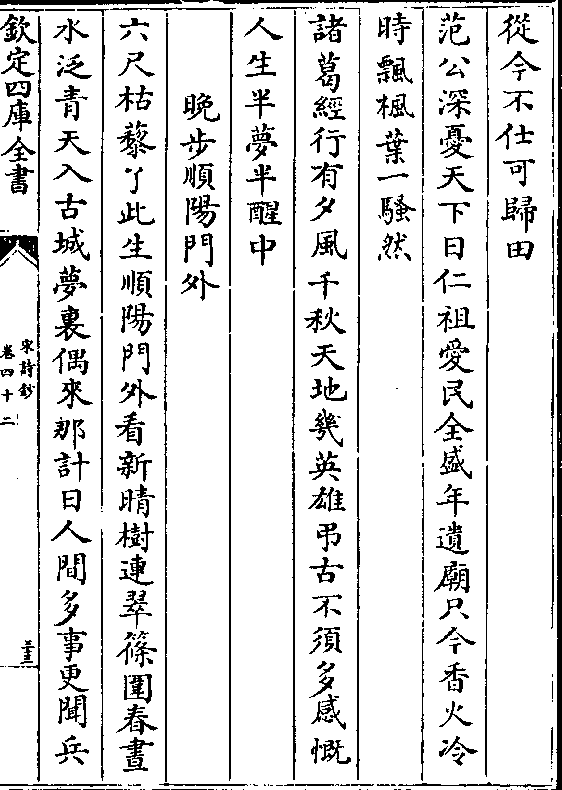 從今不仕可歸田
范公深憂天下日仁祖愛民全盛年遺廟只今香火冷
時飄楓葉一騷然
諸葛經行有夕風千秋天地幾英雄弔古不須多感慨
人生半夢半醒中
晚步順陽門外
六尺枯藜了此生順陽門外看新晴樹連翠篠圍春晝
水泛青天入古城夢裏偶來那計日人間多事更聞兵
欽定四庫全書
宋詩鈔
卷四十二
三十三